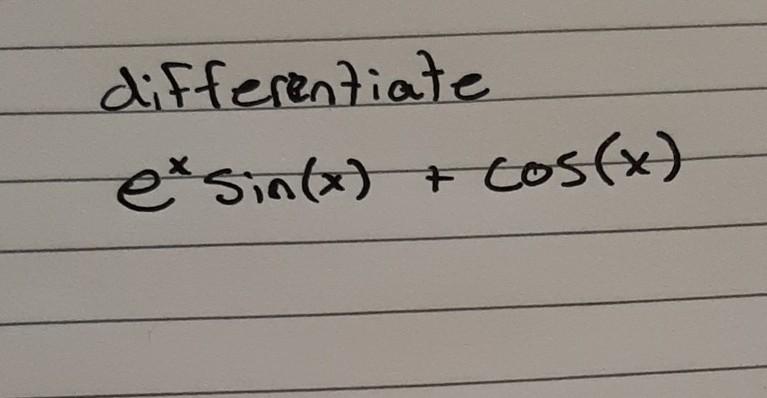 differentiate
eˣ sin(x) + cos(x)